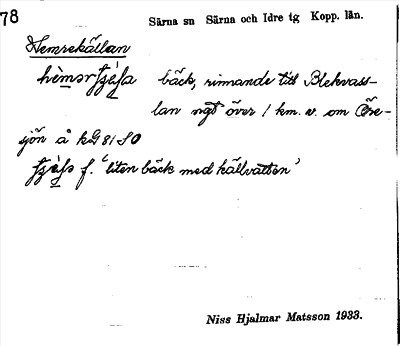 78
Särna sn Särna och Idre tg Kopp. län.
Hemrekällan
bäck, rinnande till Blekvass-
lan ngt över 1 km. v. om Öre-
sjön å kG 81 SO
f. 'liten bäck med källvatten'
Niss Hjalmar Matsson 1933.